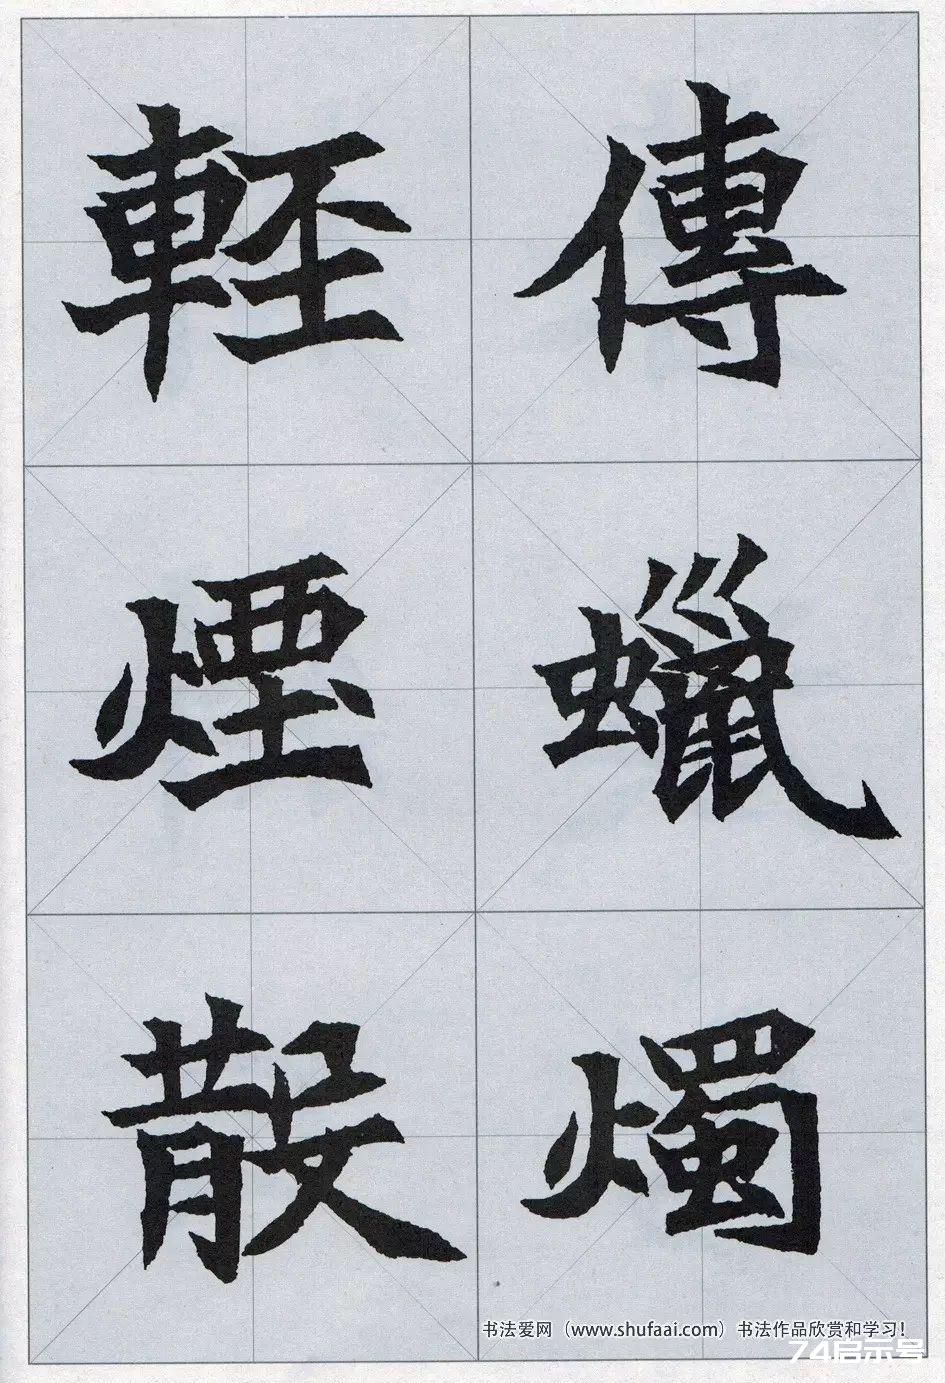 傳蠟燭
輕煙散
书法爱网（www.shufaai.com）书法作品欣赏和学习！
74启示号